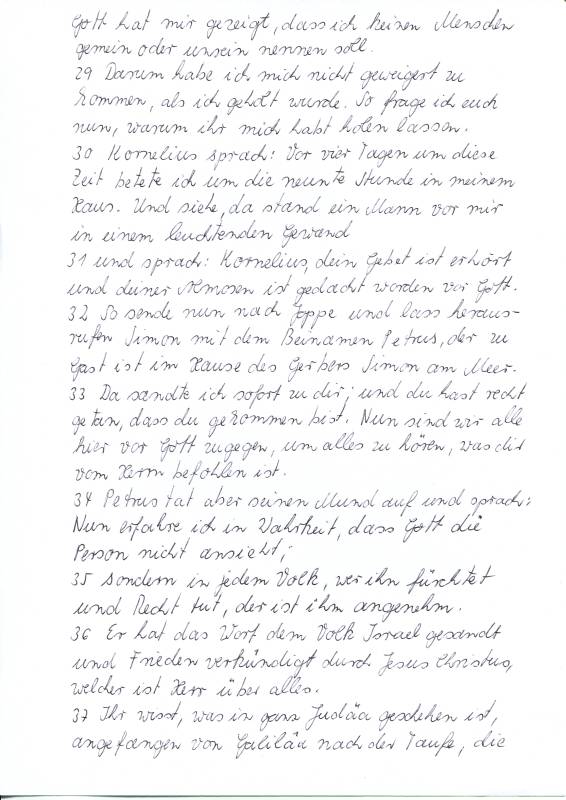 Gott hat mir gezeigt, dass ich keinen Menschen
gemein oder unrein nennen soll.
29 Darum habe ich mich nicht geweigert zu
kommen, als ich geholt wurde. So frage ich euch
nun, warum ihr mich habt holen lassen.
30 Kornelius sprach: Vor vier Tagen um diese
Zeit betete ich um die neunte Stunde in meinem
Haus. Und siehe, da stand ein Mann vor mir
in einem leuchtenden Gewand
31 und sprach: Kornelius, dein Gebet ist erhört
und deiner Almosen ist gedacht worden vor Gott.
32 So sende nun nach Joppe und lass heraus-
rufen Simon mit dem Beinamen Petrus, der zu
Gast ist im Hause des Gerbers Simon am Meer.
33 Da sandte ich sofort zu dir; und du hast recht
getan, dass du gekommen bist. Nun sind wir alle
hier vor Gott zugegen, um alles zu hören, was dir
vom Herrn befohlen ist.
34 Petrus tat aber seinen Mund auf und sprach:
Nun erfahre ich in Wahrheit, dass Gott die
Person nicht ansieht;
35 sondern in jedem Volk, wer ihn fürchtet
und Recht tut, der ist ihm angenehm.
36 Er hat das Wort dem Volk Israel gesandt
und Frieden verkündigt durch Jesus Christus,
welcher ist Herr über alles.
37 Ihr wisst, was in ganz Judäa geschehen ist,
angefangen von Galiläa nach der Taufe, die